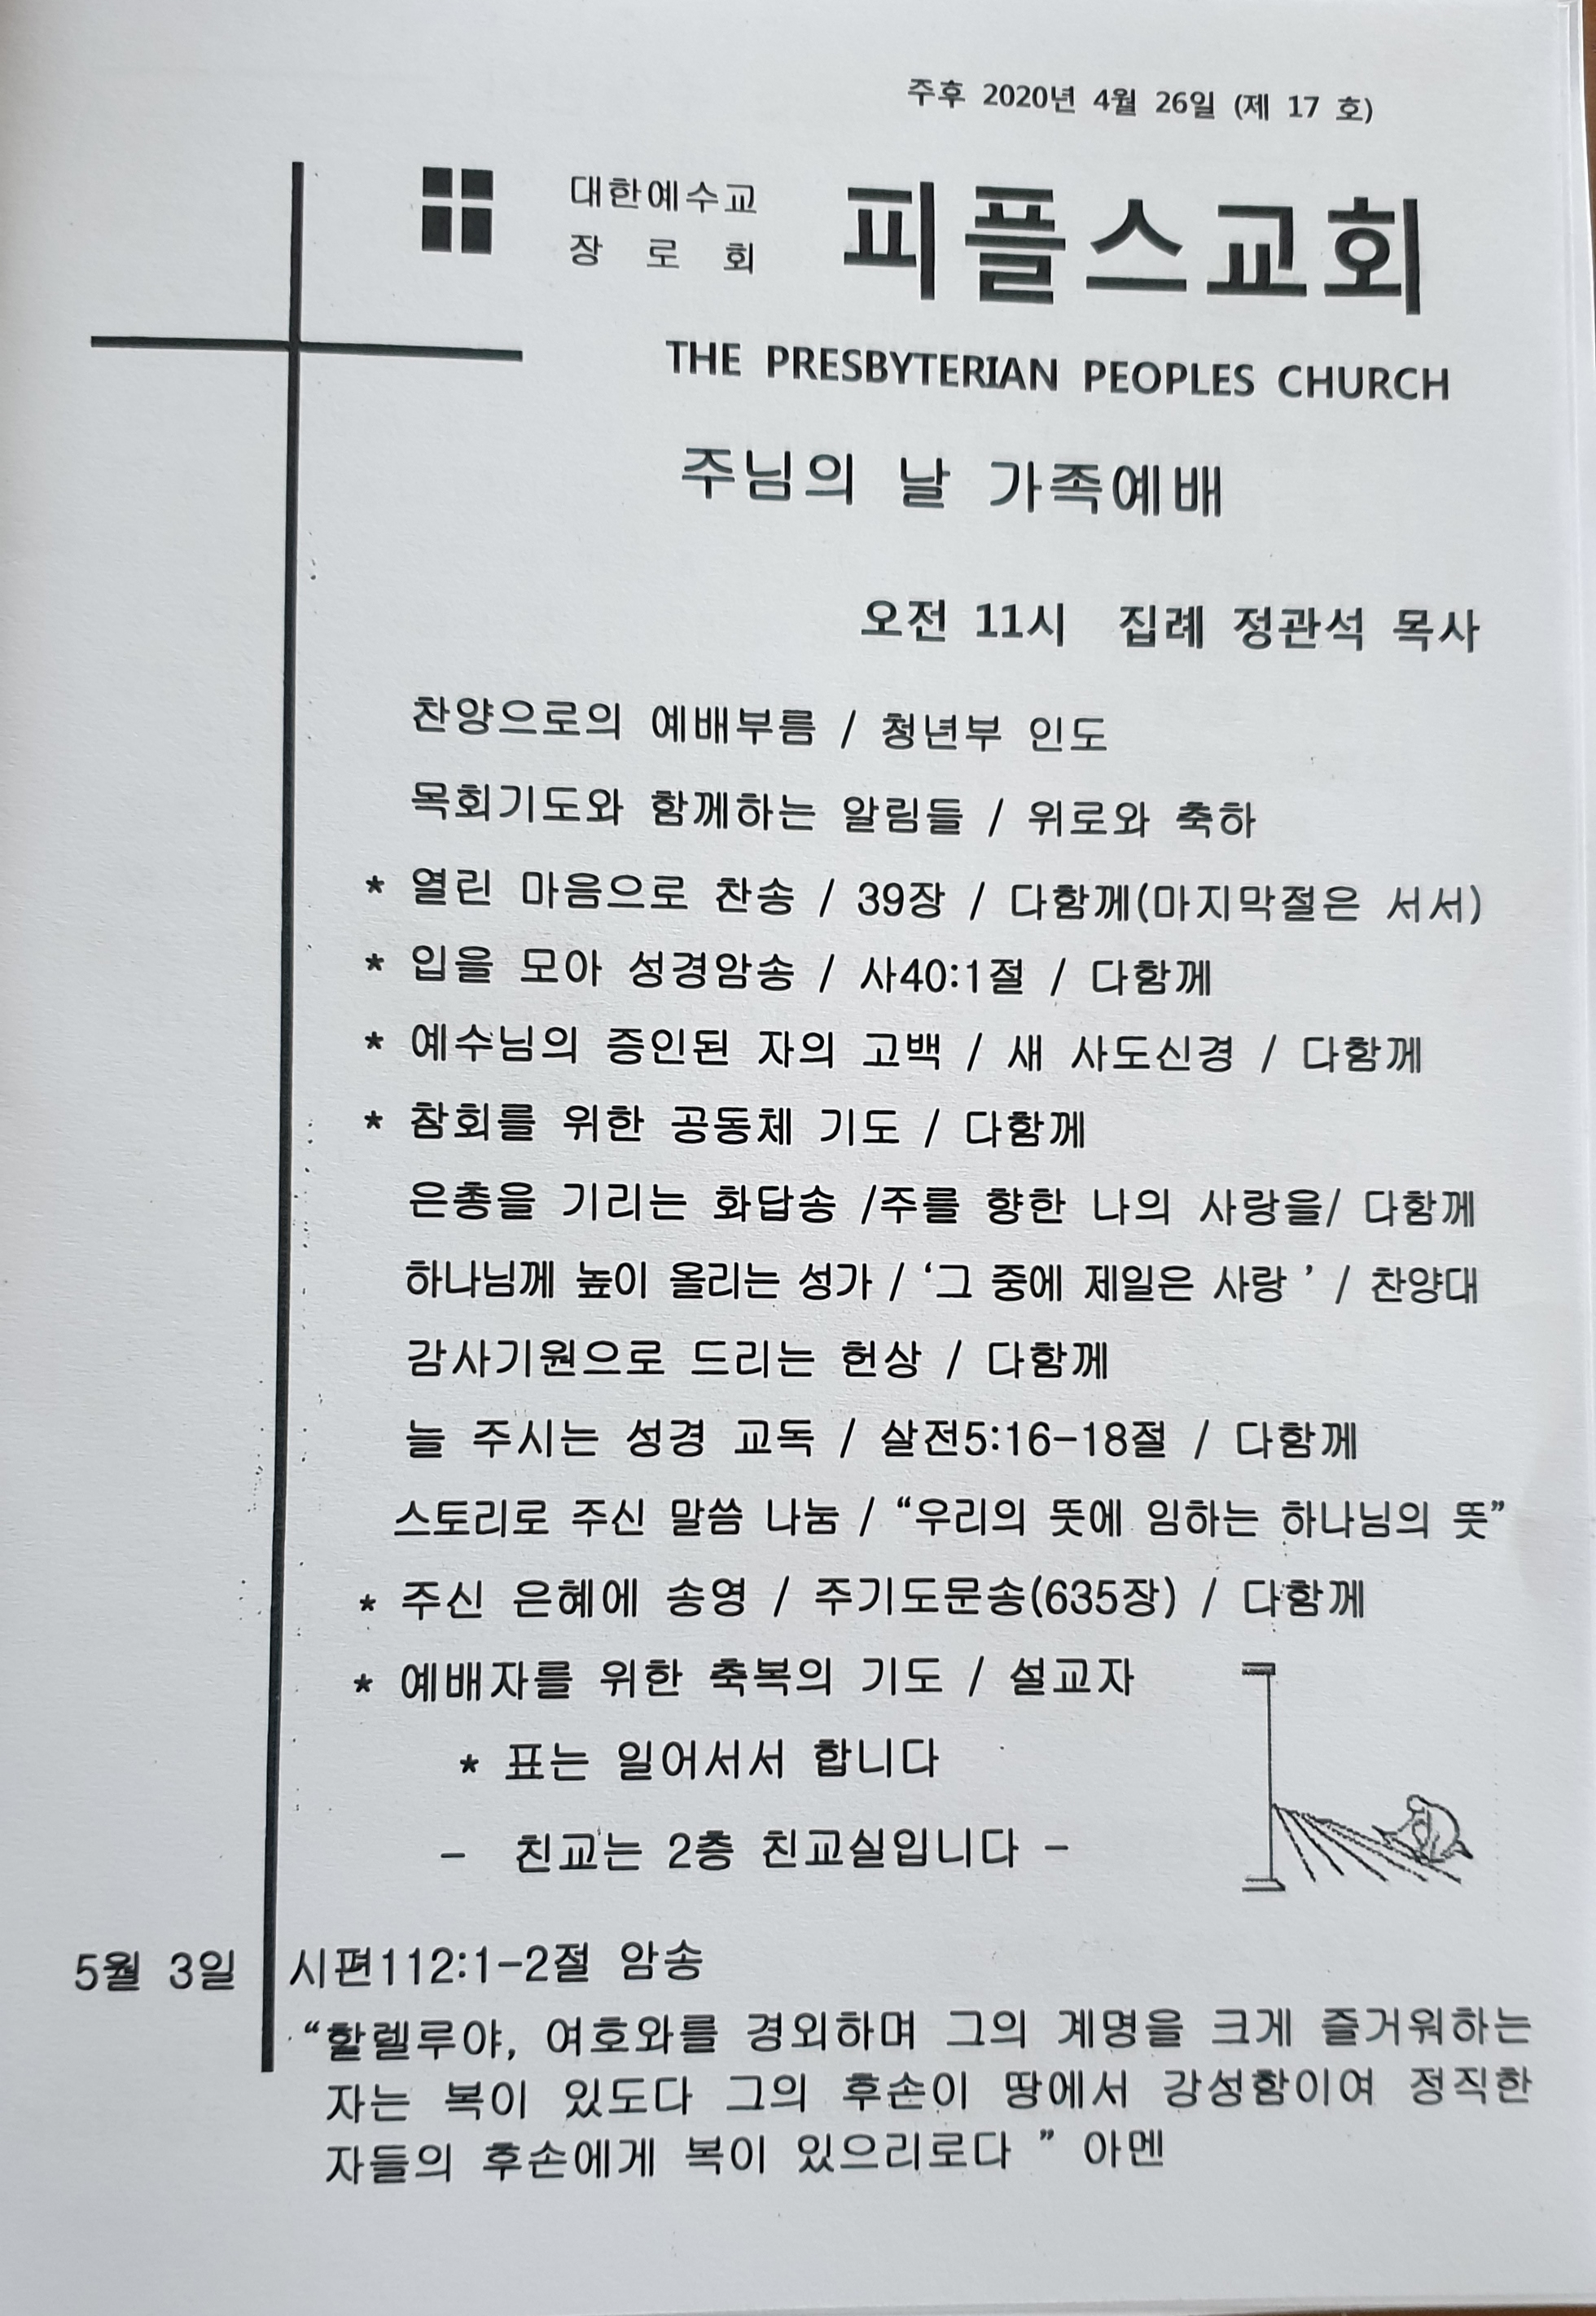 주후 2020년 4월 26일 (제 17 호)
대한예수교
장 로 회
피플스교회
THE PRESBYTERIAN PEOPLES CHURCH
주님의 날 가족예배
오전 11시 집례 정관석 목사
찬양으로의 예배부름 / 청년부 인도
목회기도와 함께하는 알림들 / 위로와 축하
* 열린 마음으로 찬송 / 39장 / 다함께(마지막절은 서서)
* 입을 모아 성경암송 / 사40:1절 / 다함께
* 예수님의 증인된 자의 고백 / 새 사도신경 / 다함께
* 참회를 위한 공동체 기도 / 다함께
은총을 기리는 화답송 /주를 향한 나의 사랑을/ 다함께
하나님께 높이 올리는 성가 / ‘그 중에 제일은 사랑 ’ / 찬양대
감사기원으로 드리는 헌상 / 다함께
늘 주시는 성경 교독 / 살전5:16-18절 / 다함께
스토리로 주신 말씀 나눔 / “우리의 뜻에 임하는 하나님의 뜻”
* 주신 은혜에 송영 / 주기도문송(635장) / 다함께
* 예배자를 위한 축복의 기도 / 설교자
* 표는 일어서서 합니다
- 친교는 2층 친교실입니다 -
5월 3일 시편112:1-2절 암송
“할렐루야, 여호와를 경외하며 그의 계명을 크게 즐거워하는
자는 복이 있도다 그의 후손이 땅에서 강성함이여 정직한
자들의 후손에게 복이 있으리로다 ” 아멘